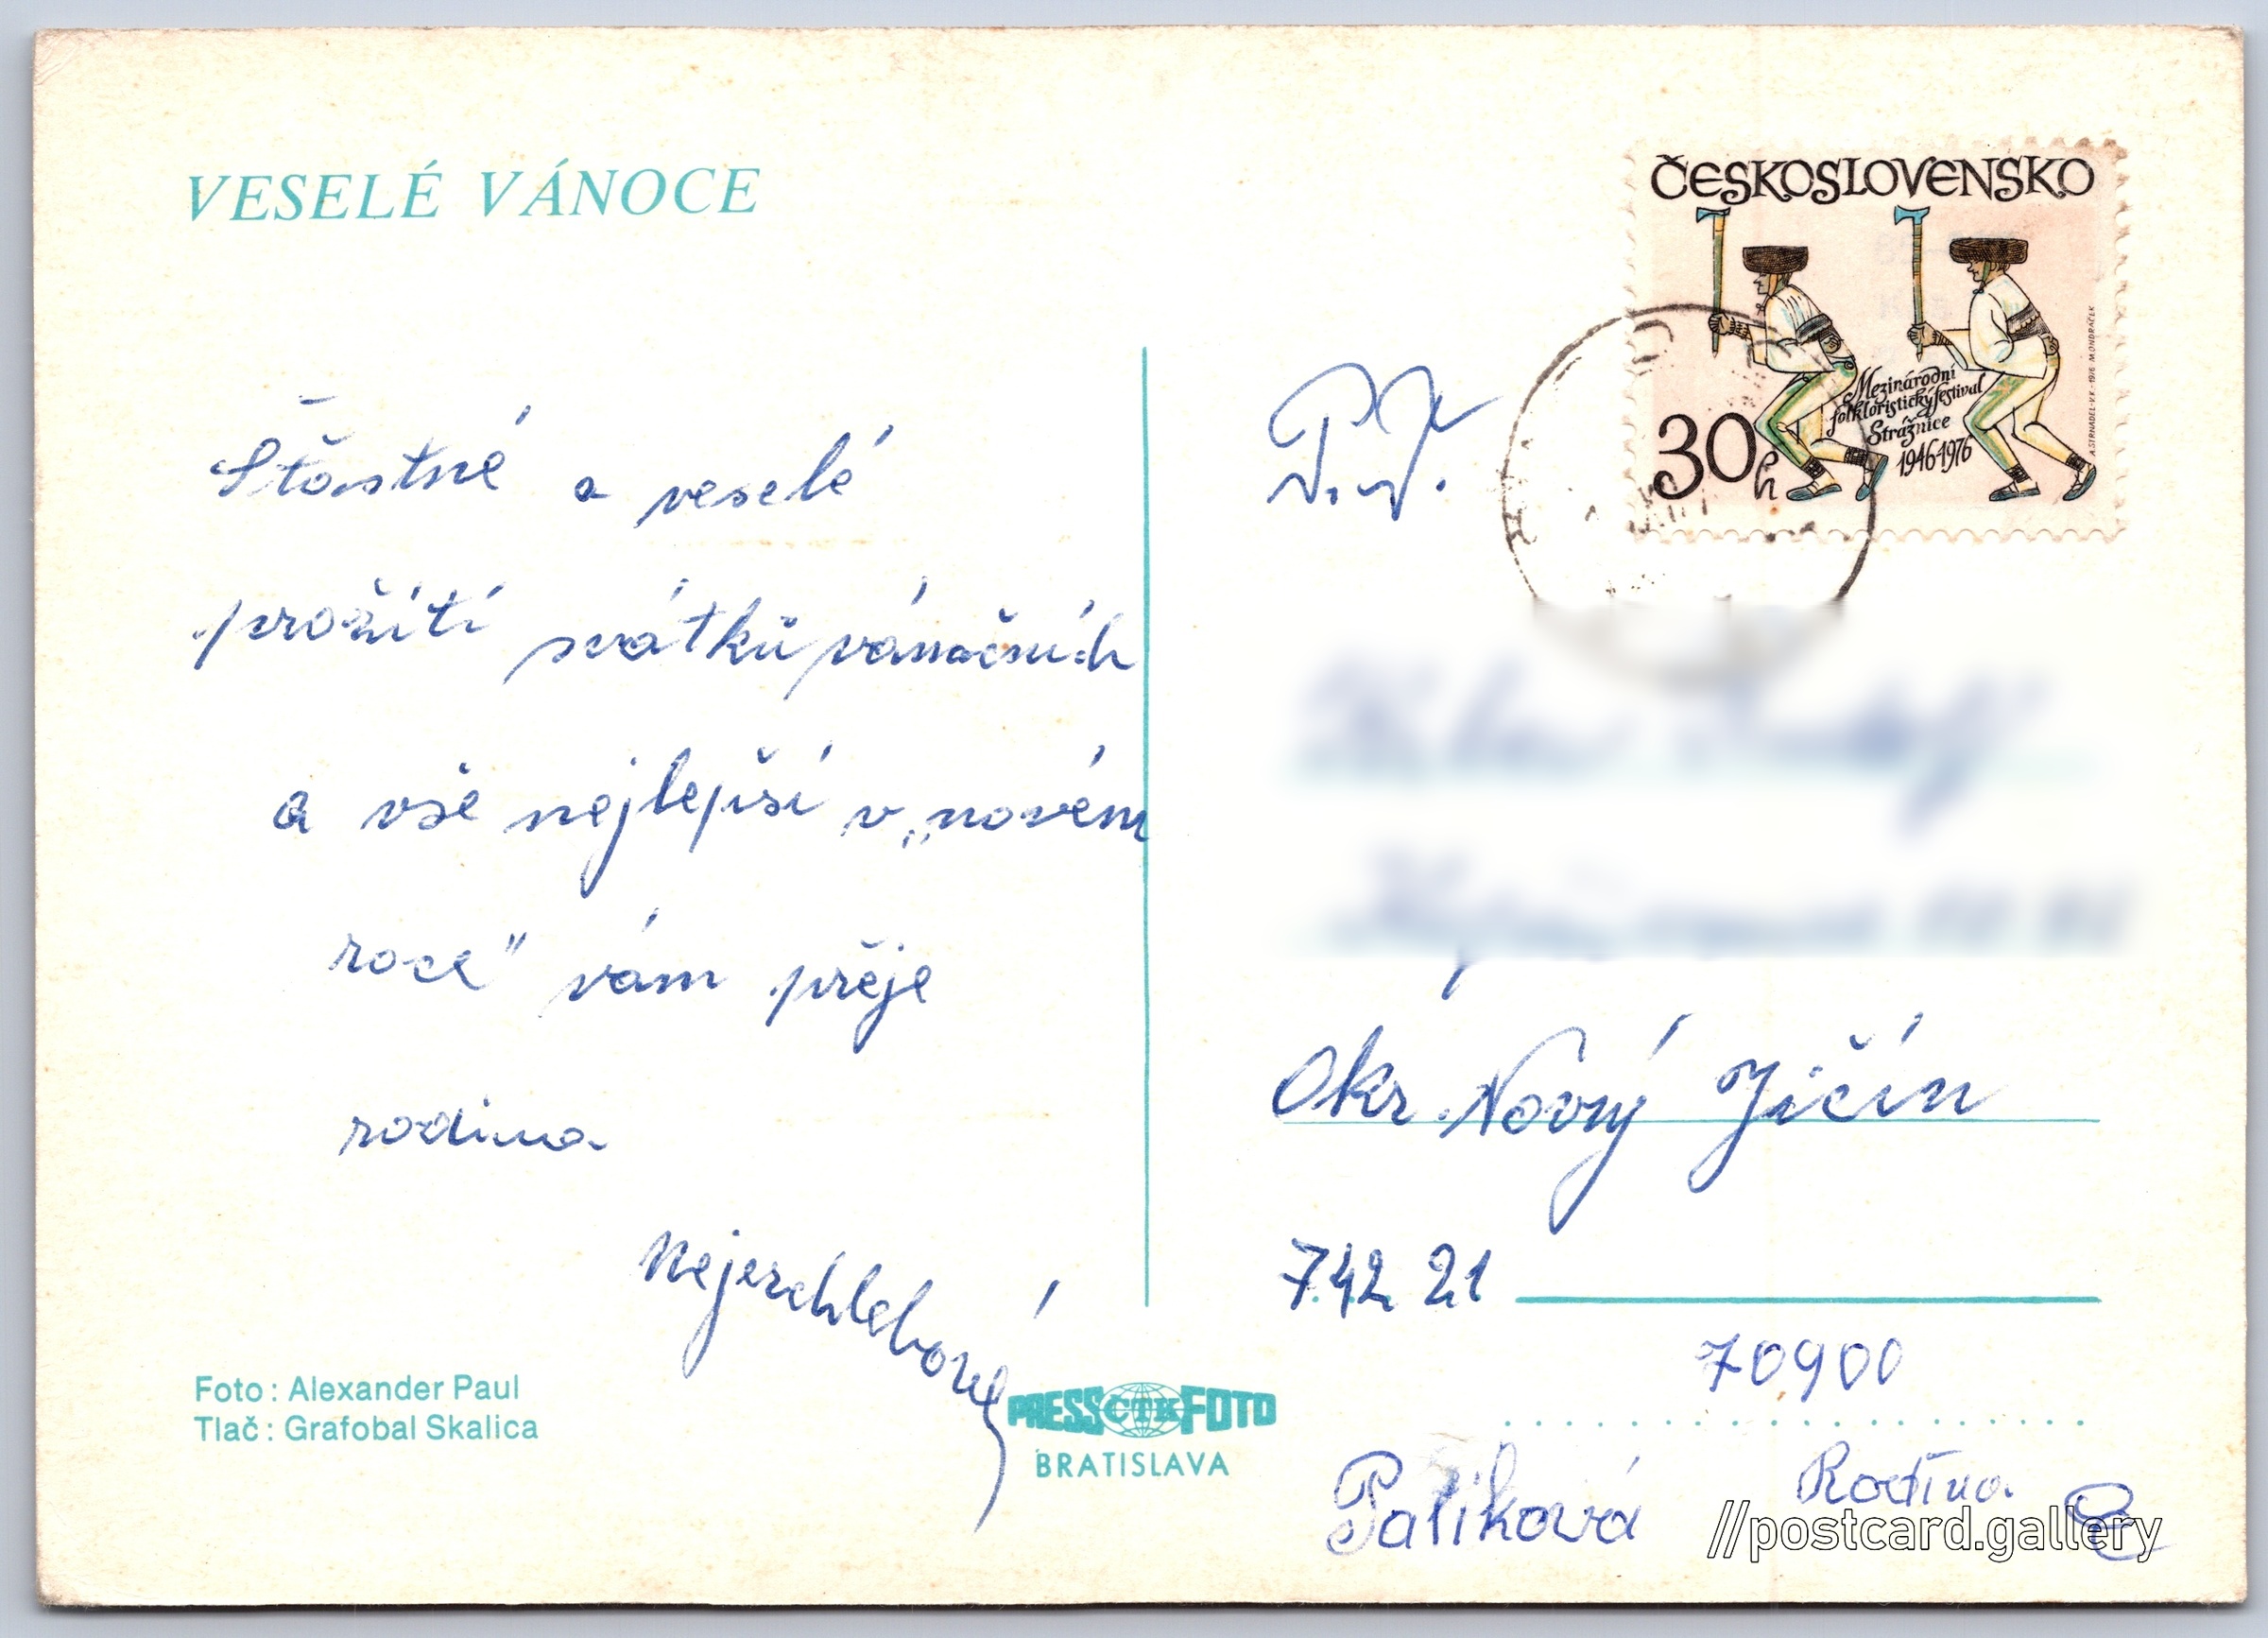 VESELÉ VÁNOCE
Šťastné a veselé
prožití svátků vánočních
a vše nejlepší v „novém
roce" vám přeje
rodina
Nejezchlebová
Foto : Alexander Paul
Tlač : Grafobal Skalica
PRESS ČTK FOTO
BRATISLAVA
ČESKOSLOVENSKO
Mezinárodní
folkloristický festival
Strážnice
1946 1976
30h
A. STRNADEL-V.K - 1976 M. ONDRÁČEK
P.T.
Okr. Nový Jičín
742 21
70900
Palíková Rodina
//postcard.gallery